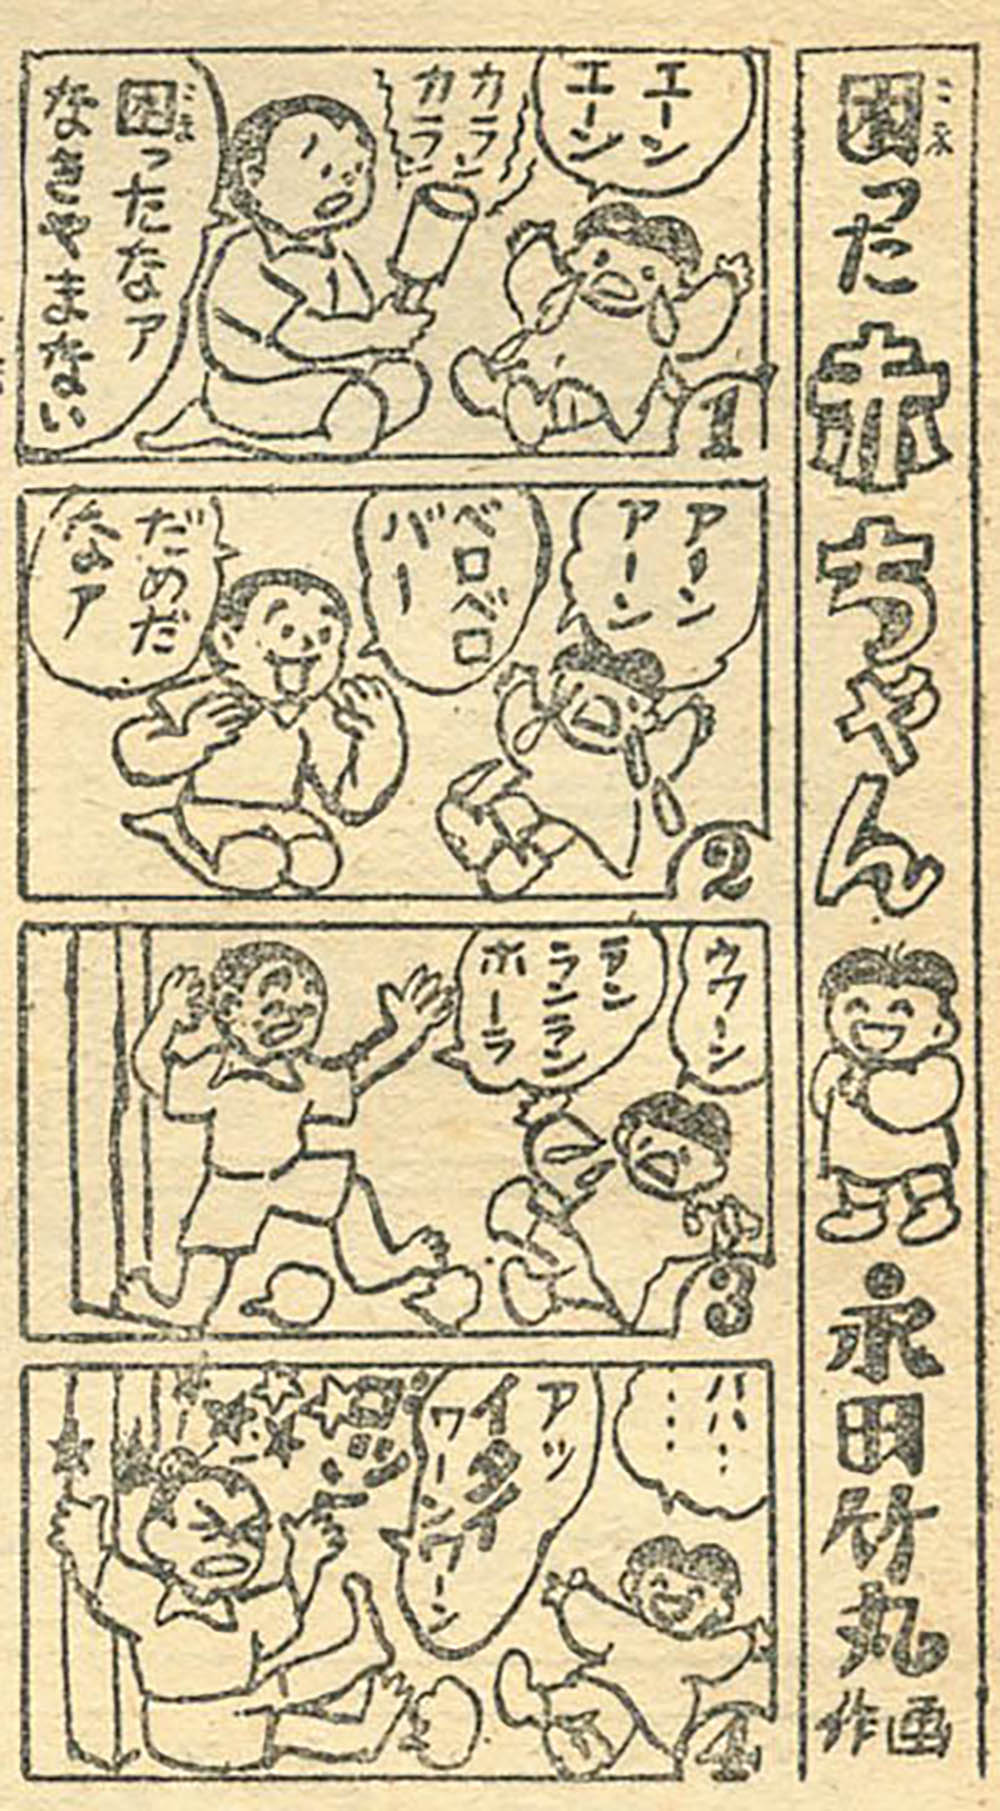 困った赤ちゃん
こま
永田竹丸
作画
エーン
エーン
カラン
カラン
困ったなァ
こま
なきやまない
1
アーン
アーン
ベロベロ
バー
だめだ
なァ
2
ウワーン
ラン
ランラン
ホーラ
3
ハハ・
・・・
アッ
イタイ
ワーンワーン
4